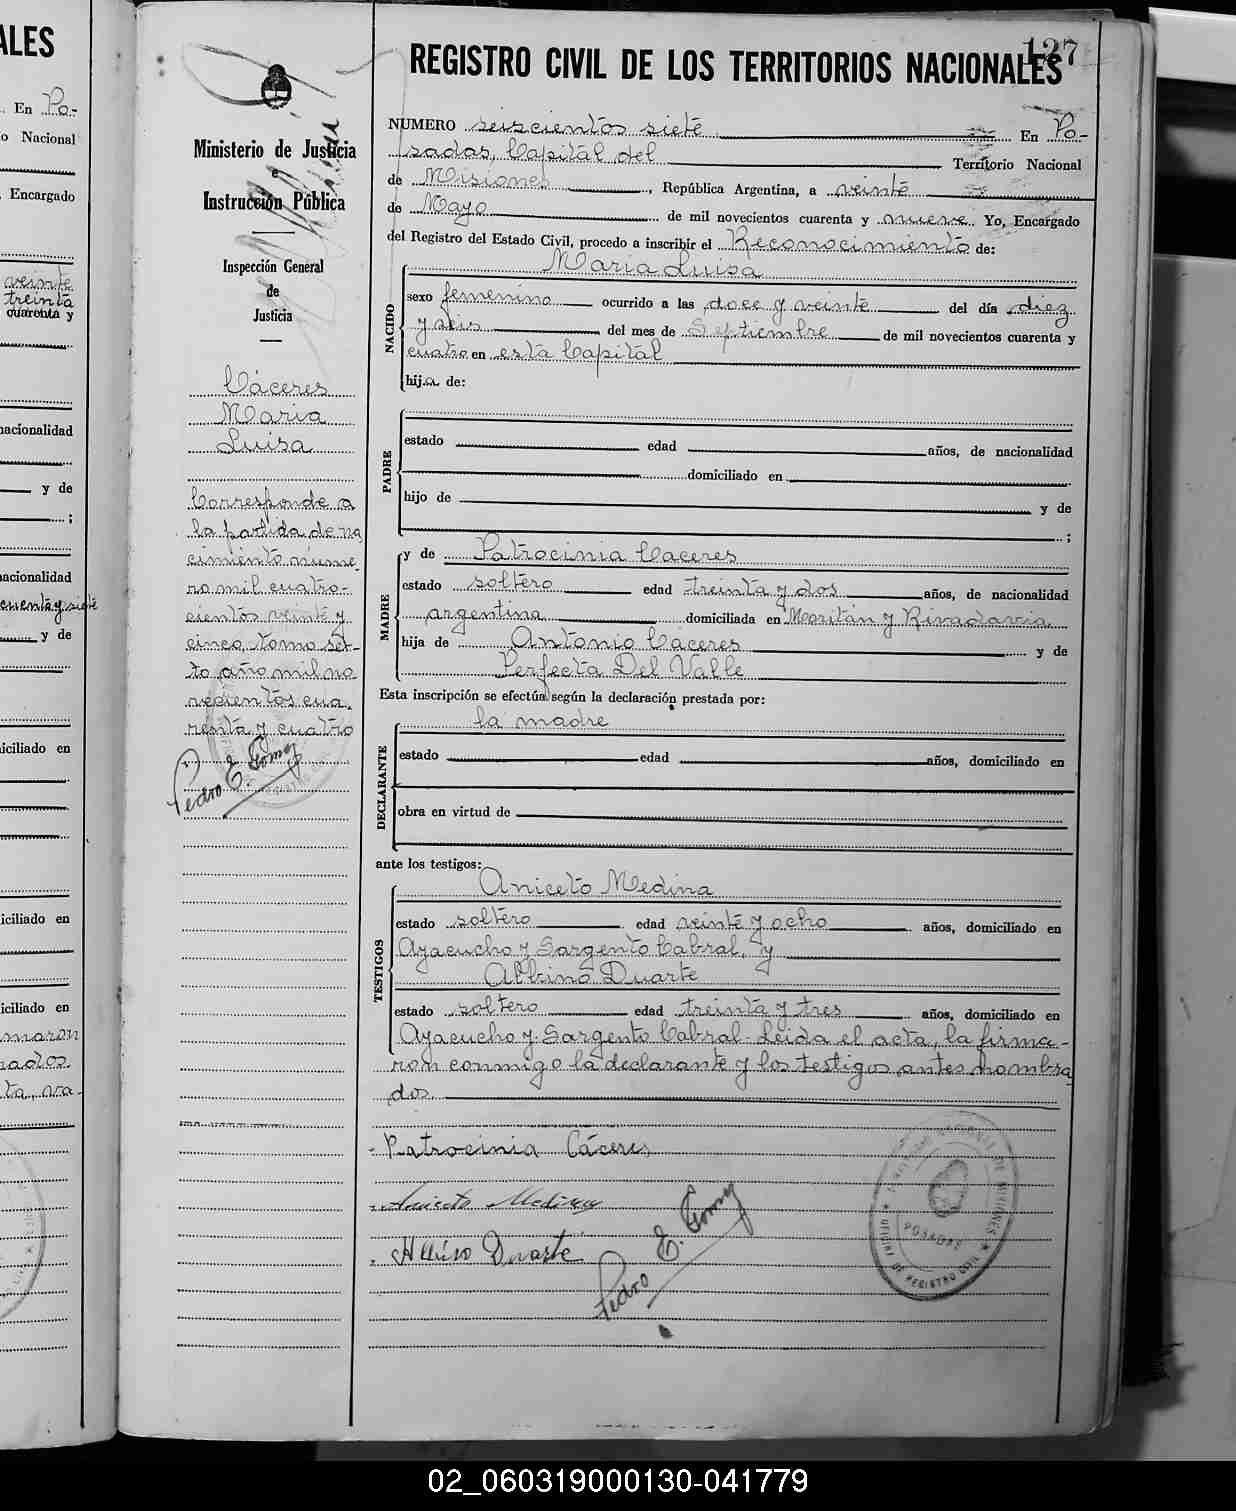 ALES
. En Po-
o Nacional
, Encargado
veinte
treinta
cuarenta y
nacionalidad
y de
;
nacionalidad
cuenta y siete
y de
iciliado en
iciliado en
iciliado en
maron
rados.
ta, va-
127
REGISTRO CIVIL DE LOS TERRITORIOS NACIONALES
Ministerio de Justicia
e
Instrucción Pública
Inspección General
de
Justicia
Cáceres
Maria
Luisa
Corresponde a
la partida de na
cimiento núme-
ro mil cuatro-
cientos veinte y
cinco, tomo sex-
to año mil no-
vecientos cua-
renta y cuatro
Pedro E. Gomez
NUMERO seiscientos siete En Po-
sadas, Capital del Territorio Nacional
de Misiones, República Argentina, a veinte
de Mayo de mil novecientos cuarenta y nueve Yo, Encargado
del Registro del Estado Civil, procedo a inscribir el Reconocimiento de:
Maria Luisa
NACIDO
sexo femenino ocurrido a las doce y veinte del día diez
y seis del mes de Septiembre de mil novecientos cuarenta y
cuatro en esta Capital
hija de:
PADRE
estado edad años, de nacionalidad
domiciliado en
hijo de y de
;
MADRE
y de Patrocinia Caceres
estado soltera edad treinta y dos años, de nacionalidad
argentina domiciliada en y Rivadavia
hija de Antonio Caceres y de
Perfecta Del Valle
Esta inscripción se efectúa según la declaración prestada por:
DECLARANTE
la madre
estado edad años, domiciliado en
obra en virtud de
ante los testigos:
TESTIGOS
Aniceto Medina
estado soltero edad veinte y ocho años, domiciliado en
Ayacucho y Sargento Cabral, y
Albino Duarte
estado soltero edad treinta y tres años, domiciliado en
Ayacucho y Sargento Cabral. Leida el acta, la firma-
ron conmigo la declarante y los testigos antes nombra
dos.
Patrocinia Cáceres
Aniceto Medina
Albino Duarte
Pedro E. Gomez
POSADAS
OFICINA DE REGISTRO CIVIL
DE MISIONES
02_060319000130-041779